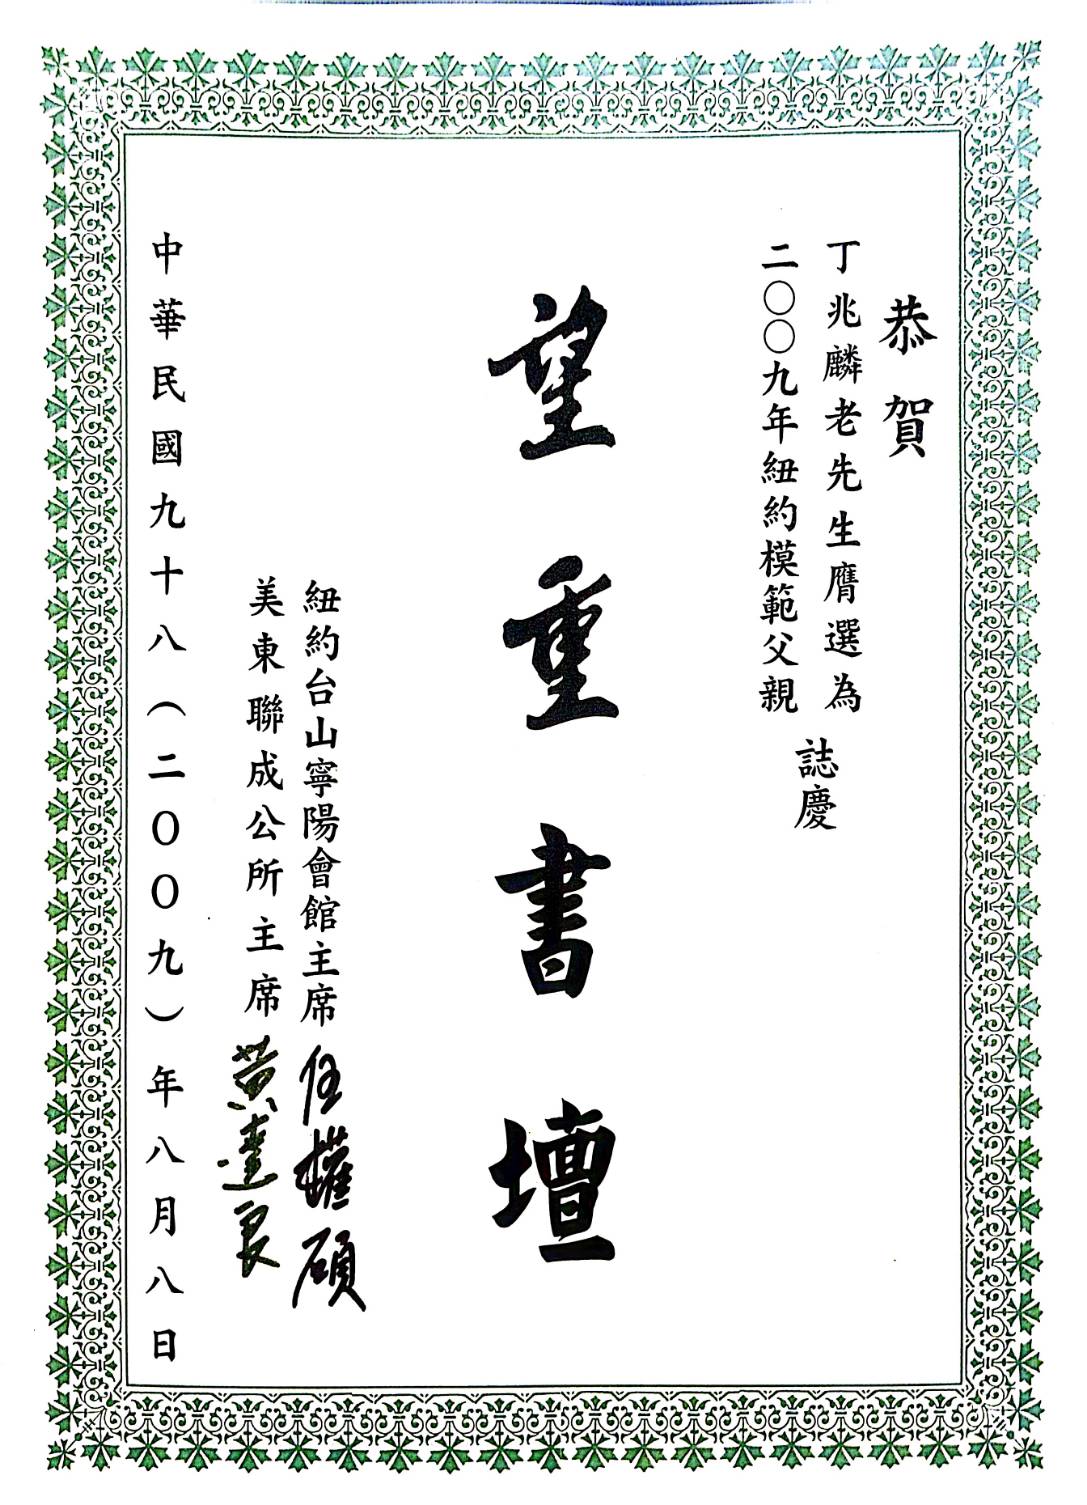 恭賀
丁兆麟老先生膺選為
二〇〇九年紐約模範父親
誌慶
望重書壇
紐約台山寧陽會館主席 伍權碩
美東聯成公所主席 黃達良
中華民國九十八（二００九）年八月八日